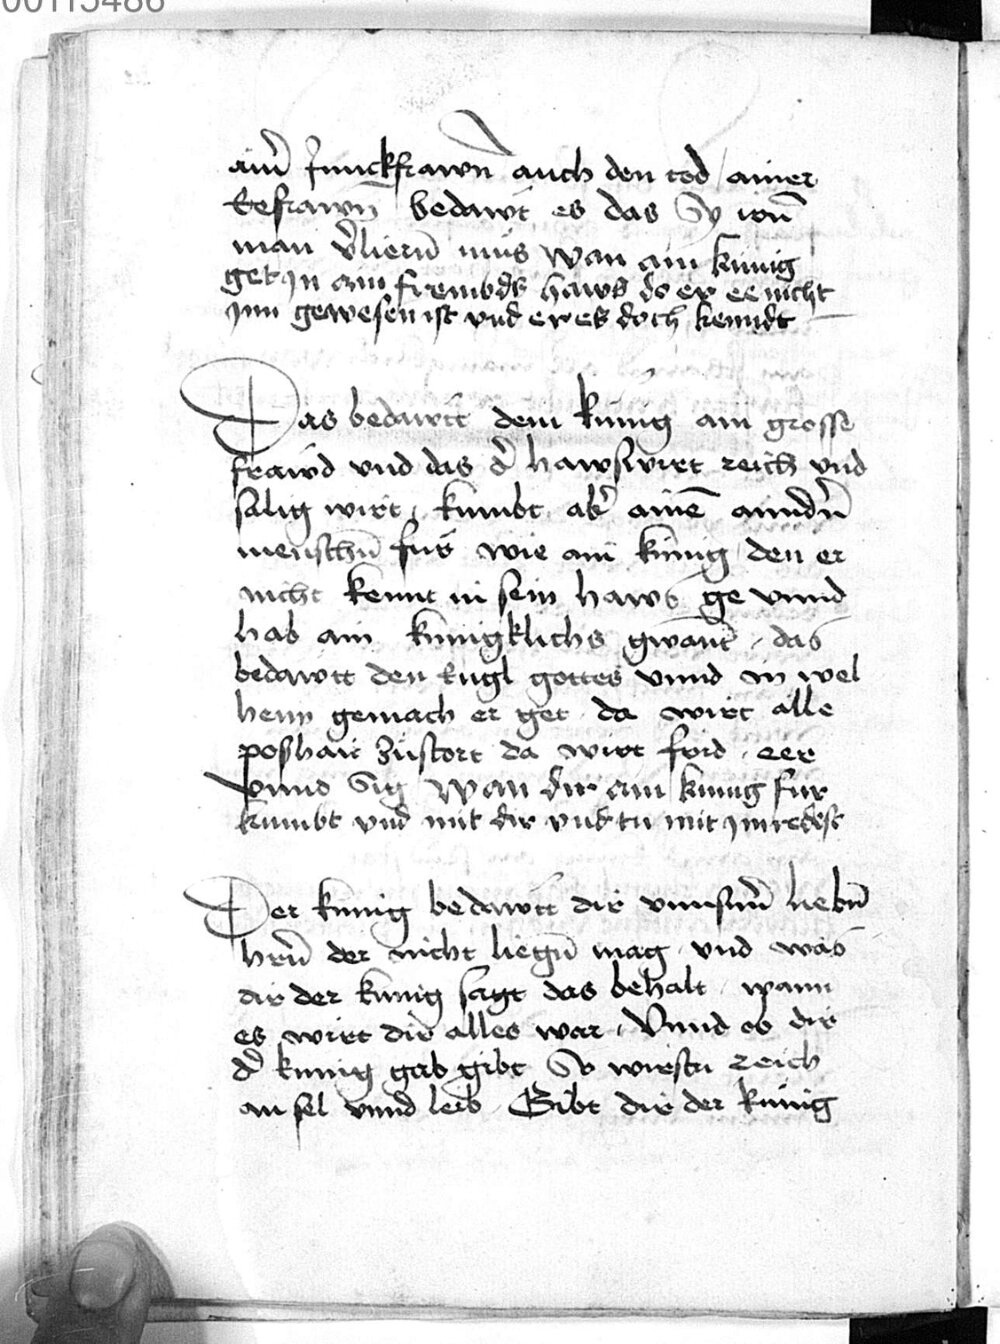 00115486
ainer Junckfrawn auch den tod ainer
Eefrawn bedawt es das Sy irn
man verliern mus wan ain kunig
get in ain frembds haws do er ee nicht
inn gewesen ist vnd er es doch kenndt
Das bedawtt dem kunig ain grosse
frawd vnd das der hawswirt reich vnd
salig wirt / kumbt aber ainem anndern
menschen fur wie ain kunig den er
nicht kennt in sein haws ge vnnd
hab ain kunigklichs gwant / das
bedawtt den Engl gottes vnnd in wel
hem gemach er get da wirt alle
poshait zustort da wirt frid / eer
vnnd Sig Wan dir ain kunig fur
kumbt vnd mit dir vnd tu mit im redest
Der kunig bedawtt dir vnnsern lieben
hern der nicht liegn mag / vnd was
dir der kunig sagt das behalt / wann
es wirt dir alles war / Vnnd ob dir
der kunig gab gibt So wirstu reich
an sel vnnd leib / Gibt dir der kunig